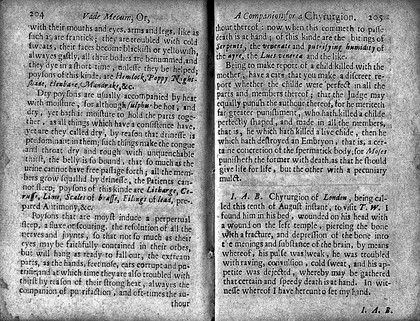 204 Vade Mecum, Or,
with their mouths and eyes, arms and legs, like as
such as are frantick; they are troubled with cold
sweats, their faces become blackish or yellowish,
alwayes gastly, all their bodies are benummed, and
they dye in a short time, unlesse they be helped,
poysons of this kind are Hemlock, Poppy, Night-
shade, Henbane, Mandrake, &c.
Dry poysons are usually accompanied by heat
with moisture, for although sulphur be hot, and
dry, yet hath it moisture to hold the parts toge-
ther, as all things which have a consistence have,
yet are they called dry, by reason that drinesse is
predominate in them; such things make the tongue
and throat dry and rough with unquenchable
thirst, the belly is so bound, that so much as the
urine cannot have free passage forth, all the mem-
bers grow squallid by drinesse, the Patients cannot
sleep; poysons of this kind are Litharge, Ce-
ruse, Lime, Scales of brasse, Filings of lead, pre-
pared Antimony, &c.
Poysons that are moyst induce a perpetual
sleep, a fluxe or scouring, the resolution of all the
nerves and joynts, so that not so much as their
eyes may be faithfully contained in their orbes,
but will hang as ready to fall out, the extream
parts, as the hands, feet, nose, ears corrupt and pu-
trifie, and at which time they are also troubled with
thirst by reason of their strong heat, alwayes the
companion of putrifaction, and oft-times the au-
thour
A Companion for a Chyrurgion. 205
thour thereof: now when this commeth to passe
death is at hand; of this kinde are the bitings of
Serpents, the venenate and putrifying humidity of
the ayre, the Lues venerea and the like.
Being to make report of a child killed with the
mother, have a care that you make a discreet re-
port whether the childe were perfect in all the
parts and members thereof; that the Judge may
equally punish the authour thereof, for he meriteth
far greater punishment, who hath killed a childe
perfectly shaped, and made in all the members,
that is, he which hath killed a live childe, then he
which hath destroyed an Embryon, that is, a cer-
taine concretion of the spermatick body, for Moses
punisheth the former with death, as that he should
give life for life, but the other with a pecuniary
mulct.
I. A. B. Chyrurgion of London, being cal-
led this tenth of August instant, to visite T. W. I
found him in his bed, wounded on his head with
a wound on the left temple, piercing the bone
with a fracture, and depression of the bone into
the meninges and substance of the brain, by means
whereof, his pulse was weak, he was troubled
with raving, convulsion, cold sweat, and his ap-
petite was dejected, whereby may be gathered
that certain and speedy death is at hand. In wit-
nesse whereof I have hereunto set my hand.
I. A. B.